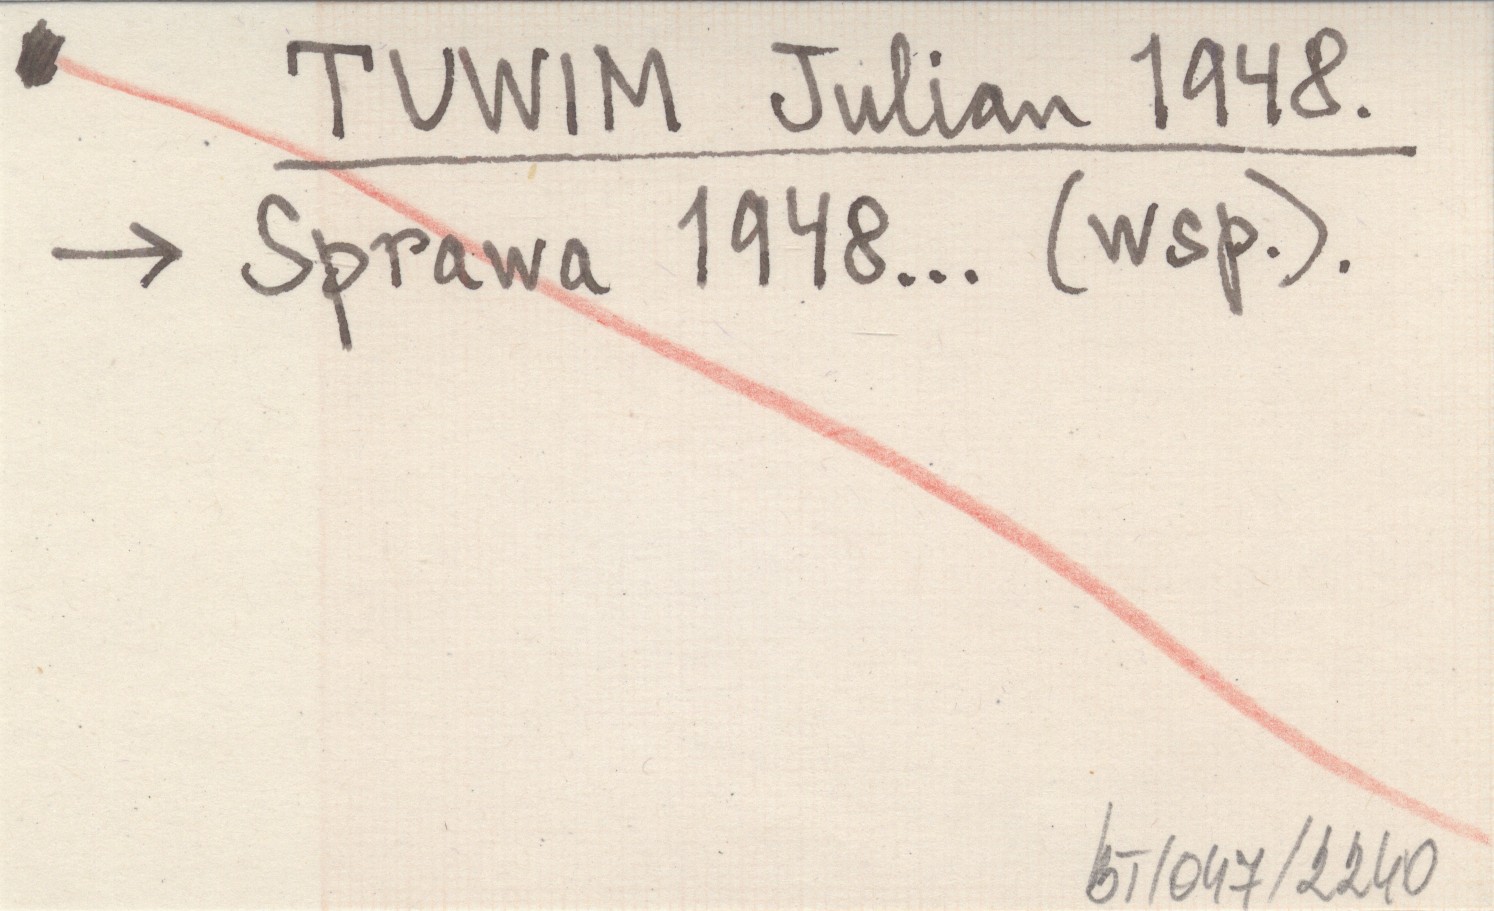 TUWIM Julian 1948.
→ Sprawa 1948... (wsp.).
bT/047/2240